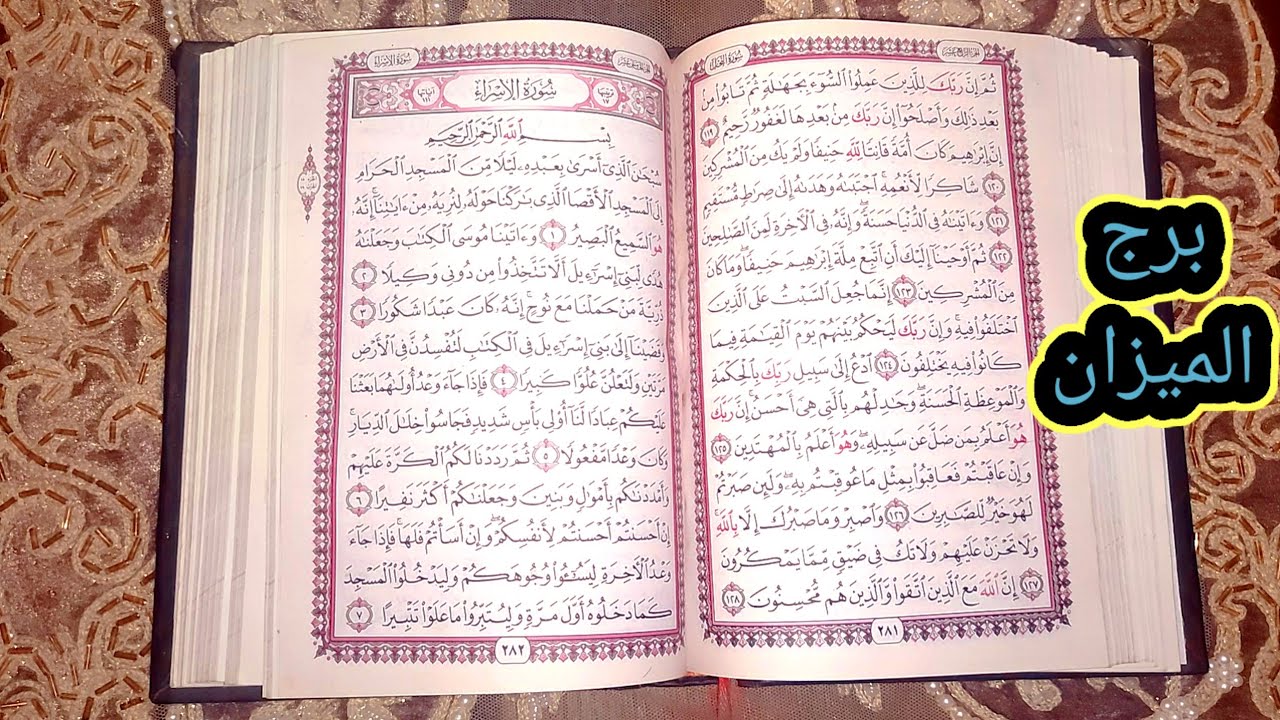 سُورَةُ النَّحْلِ
ثُمَّ إِنَّ رَبَّكَ لِلَّذِينَ عَمِلُوا۟ ٱلسُّوٓءَ بِجَهَٰلَةٍ ثُمَّ تَابُوا۟ مِنۢ
بَعْدِ ذَٰلِكَ وَأَصْلَحُوٓا۟ إِنَّ رَبَّكَ مِنۢ بَعْدِهَا لَغَفُورٌ رَّحِيمٌ ١١٩
إِنَّ إِبْرَٰهِيمَ كَانَ أُمَّةً قَانِتًا لِّلَّهِ حَنِيفًا وَلَمْ يَكُ مِنَ ٱلْمُشْرِكِينَ
١٢٠ شَاكِرًا لِّأَنْعُمِهِ ۚ ٱجْتَبَىٰهُ وَهَدَىٰهُ إِلَىٰ صِرَٰطٍ مُّسْتَقِيمٍ
١٢١ وَءَاتَيْنَٰهُ فِى ٱلدُّنْيَا حَسَنَةً ۖ وَإِنَّهُۥ فِى ٱلْءَاخِرَةِ لَمِنَ ٱلصَّٰلِحِينَ
١٢٢ ثُمَّ أَوْحَيْنَآ إِلَيْكَ أَنِ ٱتَّبِعْ مِلَّةَ إِبْرَٰهِيمَ حَنِيفًا ۖ وَمَا كَانَ
مِنَ ٱلْمُشْرِكِينَ ١٢٣ إِنَّمَا جُعِلَ ٱلسَّبْتُ عَلَى ٱلَّذِينَ
ٱخْتَلَفُوا۟ فِيهِ ۚ وَإِنَّ رَبَّكَ لَيَحْكُمُ بَيْنَهُمْ يَوْمَ ٱلْقِيَٰمَةِ فِيمَا
كَانُوا۟ فِيهِ يَخْتَلِفُونَ ١٢٤ ٱدْعُ إِلَىٰ سَبِيلِ رَبِّكَ بِٱلْحِكْمَةِ
وَٱلْمَوْعِظَةِ ٱلْحَسَنَةِ ۖ وَجَٰدِلْهُم بِٱلَّتِى هِىَ أَحْسَنُ ۚ إِنَّ رَبَّكَ
هُوَ أَعْلَمُ بِمَن ضَلَّ عَن سَبِيلِهِۦ ۖ وَهُوَ أَعْلَمُ بِٱلْمُهْتَدِينَ ١٢٥
وَإِنْ عَاقَبْتُمْ فَعَاقِبُوا۟ بِمِثْلِ مَا عُوقِبْتُم بِهِۦ ۖ وَلَئِن صَبَرْتُمْ
لَهُوَ خَيْرٌ لِّلصَّٰبِرِينَ ١٢٦ وَٱصْبِرْ وَمَا صَبْرُكَ إِلَّا بِٱللَّهِ ۚ
وَلَا تَحْزَنْ عَلَيْهِمْ وَلَا تَكُ فِى ضَيْقٍ مِّمَّا يَمْكُرُونَ
١٢٧ إِنَّ ٱللَّهَ مَعَ ٱلَّذِينَ ٱتَّقَوا۟ وَّٱلَّذِينَ هُم مُّحْسِنُونَ ١٢٨
٢٨١
سُورَةُ الإِسْرَاءِ
ترتيبها ١٧ سُورَةُ الإِسْرَاءِ آياتها ١١١
بِسْمِ ٱللَّهِ ٱلرَّحْمَٰنِ ٱلرَّحِيمِ
سُبْحَٰنَ ٱلَّذِىٓ أَسْرَىٰ بِعَبْدِهِۦ لَيْلًا مِّنَ ٱلْمَسْجِدِ ٱلْحَرَامِ
إِلَى ٱلْمَسْجِدِ ٱلْأَقْصَا ٱلَّذِى بَٰرَكْنَا حَوْلَهُۥ لِنُرِيَهُۥ مِنْ ءَايَٰتِنَآ ۚ إِنَّهُۥ
هُوَ ٱلسَّمِيعُ ٱلْبَصِيرُ ١ وَءَاتَيْنَا مُوسَى ٱلْكِتَٰبَ وَجَعَلْنَٰهُ
هُدًى لِّبَنِىٓ إِسْرَٰٓءِيلَ أَلَّا تَتَّخِذُوا۟ مِن دُونِى وَكِيلًا ٢
ذُرِّيَّةَ مَنْ حَمَلْنَا مَعَ نُوحٍ ۚ إِنَّهُۥ كَانَ عَبْدًا شَكُورًا ٣
وَقَضَيْنَآ إِلَىٰ بَنِىٓ إِسْرَٰٓءِيلَ فِى ٱلْكِتَٰبِ لَتُفْسِدُنَّ فِى ٱلْأَرْضِ
مَرَّتَيْنِ وَلَتَعْلُنَّ عُلُوًّا كَبِيرًا ٤ فَإِذَا جَآءَ وَعْدُ أُولَىٰهُمَا بَعَثْنَا
عَلَيْكُمْ عِبَادًا لَّنَآ أُو۟لِى بَأْسٍ شَدِيدٍ فَجَاسُوا۟ خِلَٰلَ ٱلدِّيَارِ ۚ
وَكَانَ وَعْدًا مَّفْعُولًا ٥ ثُمَّ رَدَدْنَا لَكُمُ ٱلْكَرَّةَ عَلَيْهِمْ
وَأَمْدَدْنَٰكُم بِأَمْوَٰلٍ وَبَنِينَ وَجَعَلْنَٰكُمْ أَكْثَرَ نَفِيرًا ٦
إِنْ أَحْسَنتُمْ أَحْسَنتُمْ لِأَنفُسِكُمْ ۖ وَإِنْ أَسَأْتُمْ فَلَهَا ۚ فَإِذَا جَآءَ
وَعْدُ ٱلْءَاخِرَةِ لِيَسُۥٓـُٔوا۟ وُجُوهَكُمْ وَلِيَدْخُلُوا۟ ٱلْمَسْجِدَ
كَمَا دَخَلُوهُ أَوَّلَ مَرَّةٍ وَلِيُتَبِّرُوا۟ مَا عَلَوْا۟ تَتْبِيرًا ٧
٢٨٢
برج
الميزان